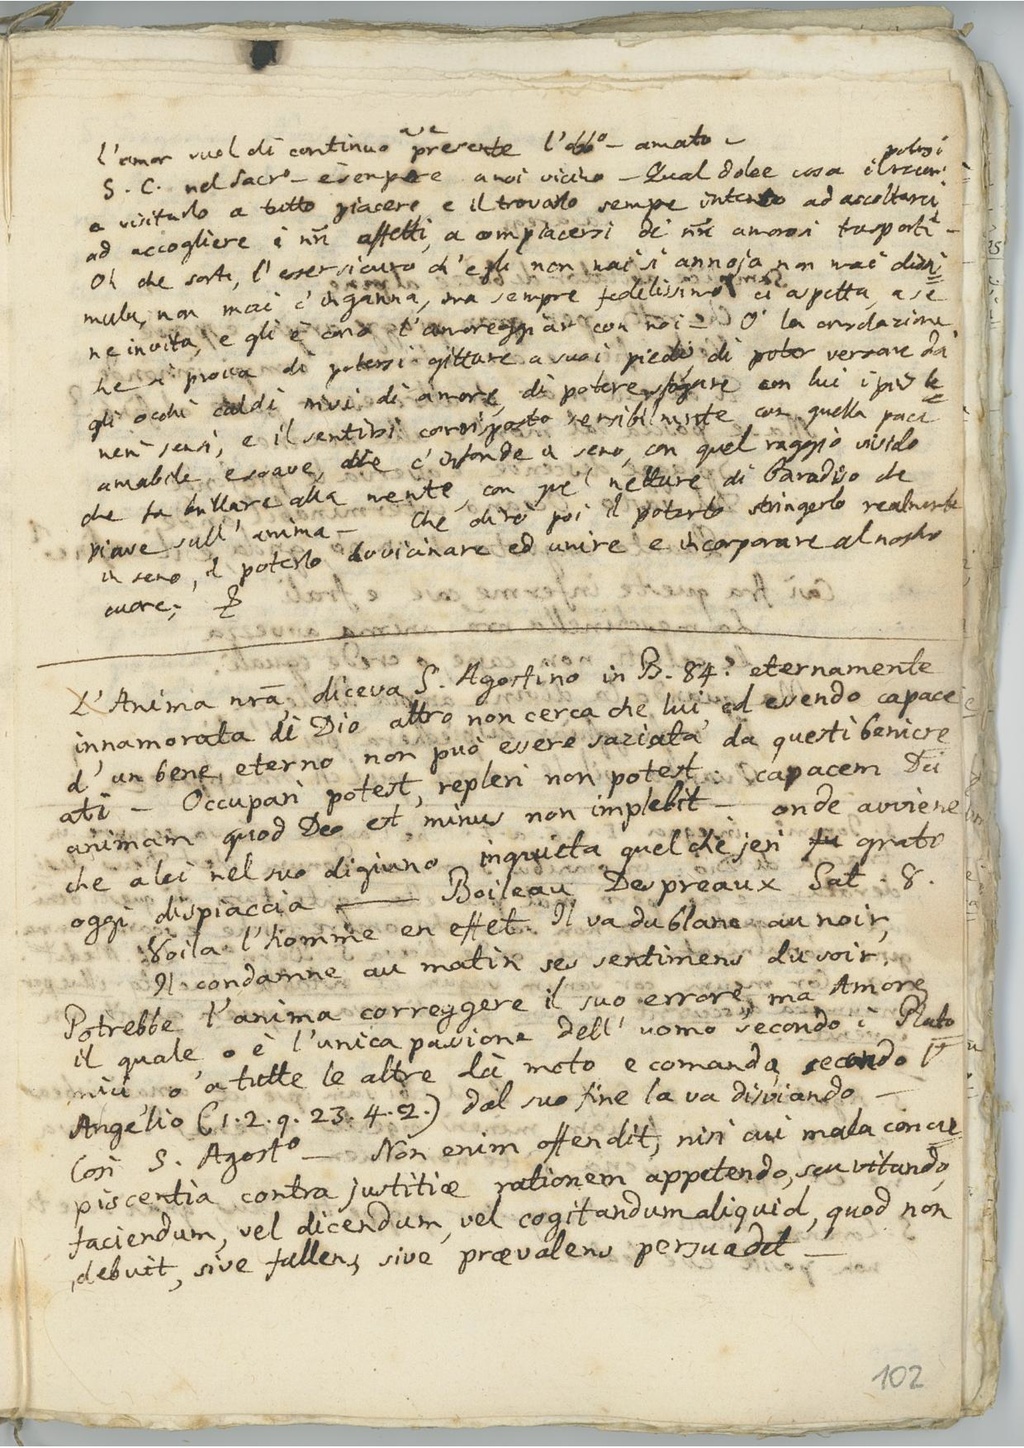 L'amor vuol di continuo ave presente l'obb.º amato –
S. C. nel Sacr.º – è sempre a noi vicino – Qual dolce cosa il potersi
a visitarlo a tutto piacere e il trovarlo sempre intento ad ascoltarci
ad accogliere i nrī affetti, a compiacersi de nrī amorosi trasporti –
Oh che sorte, l'esser sicuro ch'egli non mai si annoja non mai dissi=
mula, non mai c'inganna, ma sempre fedelissimo ci aspetta, a se
ne invita, e gli è caro l'amoreggiar con noi – O' la consolazione
he si prova di potersi gittare a suoi piedi di poter versare da
gli occhi caldi rivi di amore, di potere sfogare con lui i più te=
neri sensi, e il sentirsi corrisposto sensibilmente con quella pace
amabile e soave, che c'infonde in seno, con quel raggio vivido
che fa brillare alla mente, con quel nettare di Paradiso che
piove sull'anima – Che dirò poi il poterlo stringerlo realmente
in seno, il poterlo avvicinare ed unire e incorporare al nostro
cuore;
L'Anima nrā, diceva S. Agostino in B. 84: eternamente
innamorata di Dio altro non cerca che lui, ed essendo capace
d'un bene eterno non può essere saziata da questi beni cre
ati – Occupari potest, repleri non potest: capacem Dei
animam quod Deo est minus non implebit – onde avviene
che a lei nel suo digiuno inquieta quel che jeri fu grato
oggi dispiaccia — Boileau Despreaux Sat. 8.
Voila l'homme en effet. Il va du blanc au noir,
Il condamne au matin ses sentimens du soir.
Potrebbe l'anima correggere il suo errore, ma Amore
il quale o è l'unica passione dell'uomo secondo i Plato
nici o a tutte le altre dà moto e comanda secondo l'
Angelio (1. 2. q. 23. 4. 2.) dal suo fine la va disviando –
Così S. Agost.º – Non enim offendit, nisi cui mala concu=
piscentia contra justitiæ rationem appetendo, seu vitando,
faciendum, vel dicendum, vel cogitandum aliquid, quod non
debuit, sive fallens, sive prævalens persuadet –
102